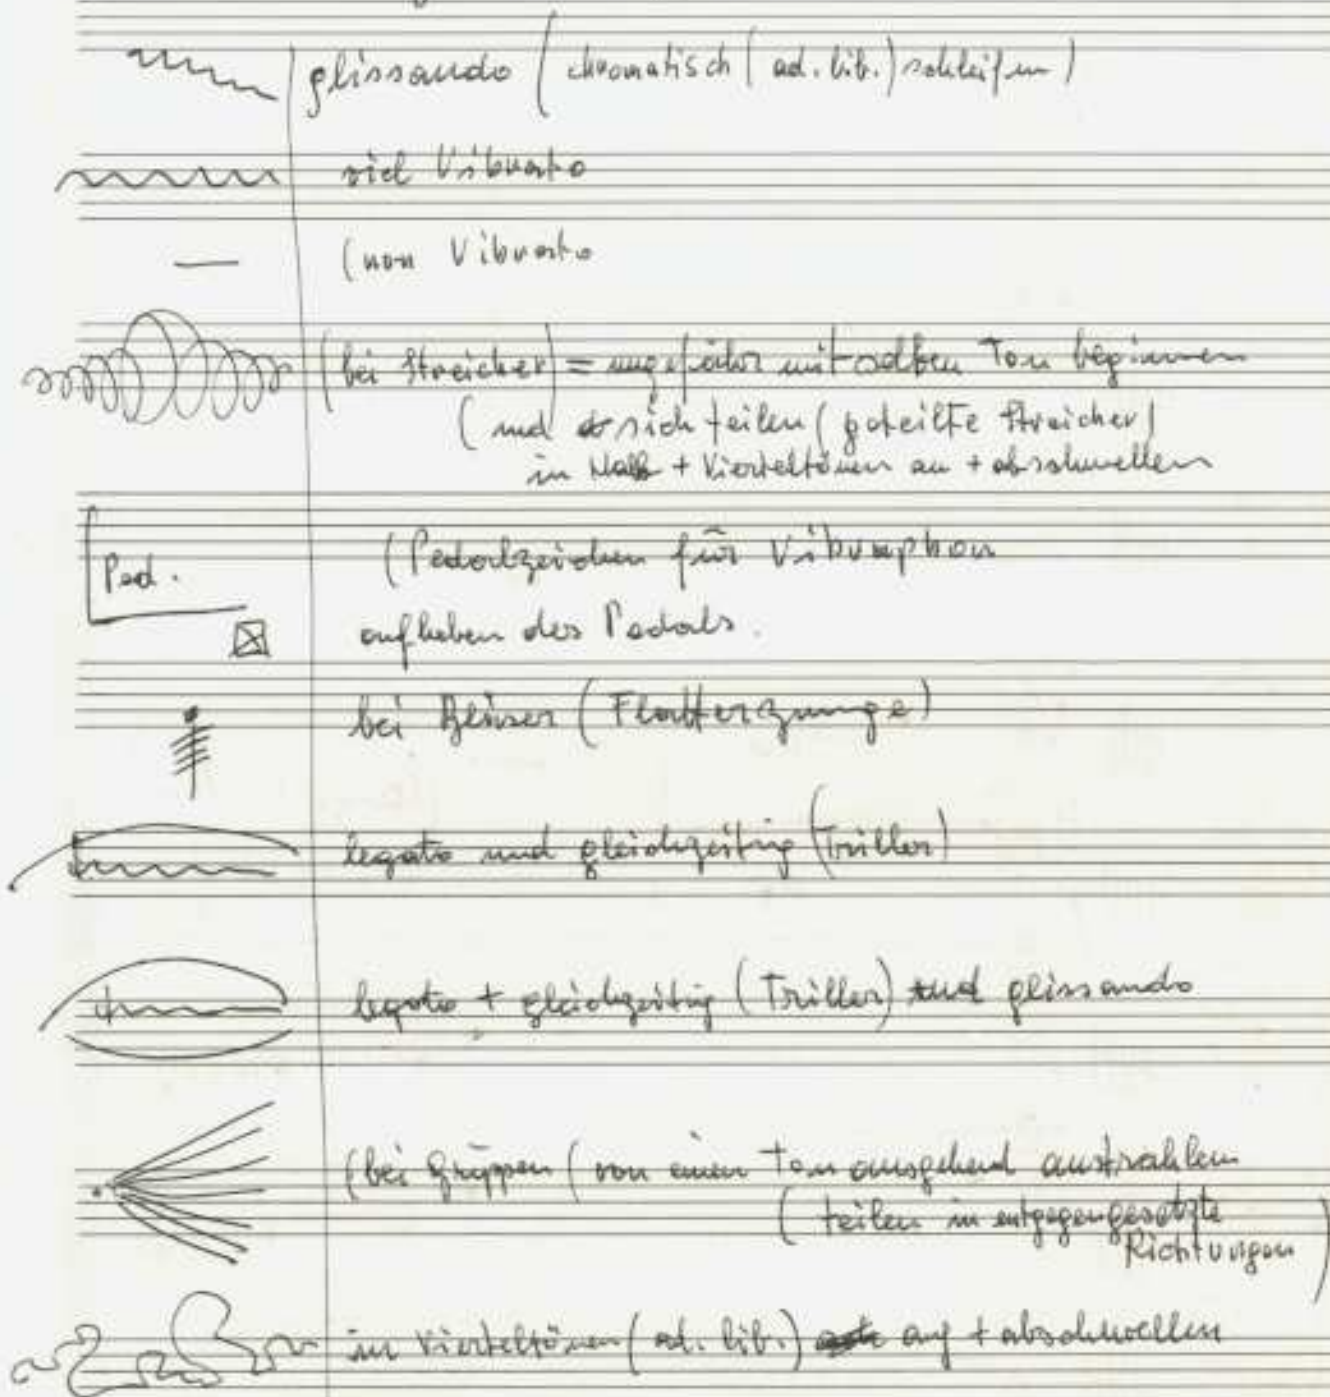 glissando (chromatisch (ad. lib.) schleifen)
viel Vibrato
(non Vibrato
(bei Streicher) = ungefähr mit selben Ton beginnen
(und sich teilen (geteilte Streicher)
in Halb + Vierteltönen an + abschwellen
Ped.
(Pedalzeichen für Vibraphon
aufheben des Pedals.
bei Bläser (Flatterzunge)
legato und gleichzeitig (Triller)
legato + gleichzeitig (Triller) und glissando
(bei Gruppen (von einen Ton ausgehend austrahlen
(teilen in entgegengesetzte
Richtungen)
in Vierteltönen (ad. lib.) auf + abschwellen